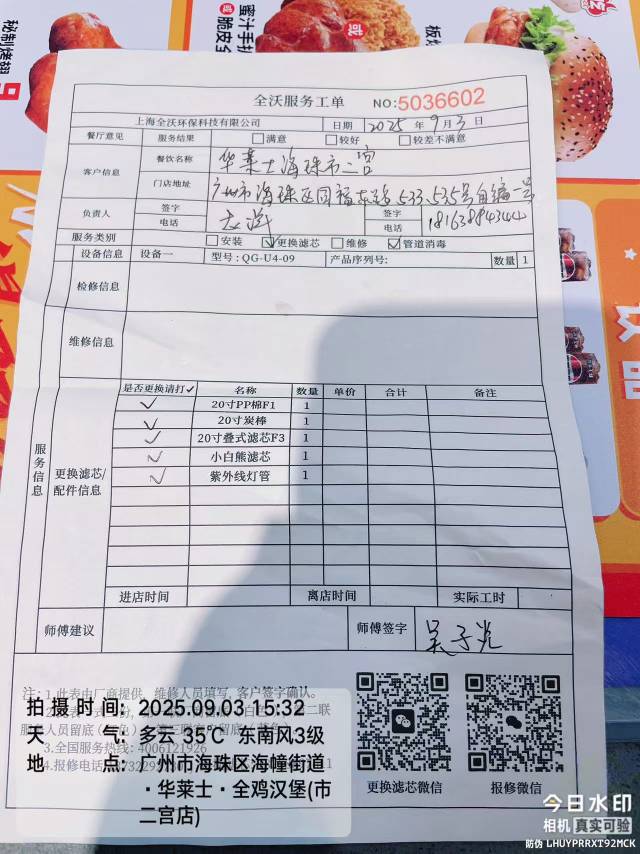 秘制烤翅
蜜汁手扒
或
脆皮全
板烧
全沃服务工单 NO:5036602
上海全沃环保科技有限公司 日期 2025 年 9 月 3 日
餐厅意见 服务结果 满意 较好 较差不满意
客户信息 餐饮名称 华莱士海珠市二宫
门店地址 广州市海珠区同福东路533、535号自编一号
负责人 签字 签字
电话 电话
服务类别 安装 更换滤芯 维修 管道消毒
设备信息 设备一 型号:QG-U4-09 产品序列号: 数量 1
检修信息
维修信息
服务信息
更换滤芯/配件信息
是否更换请打✓ 名称 数量 单价 合计 备注
✓ 20寸PP棉F1 1
✓ 20寸炭棒 1
✓ 20寸叠式滤芯F3 1
✓ 小白熊滤芯 1
✓ 紫外线灯管 1
进店时间 离店时间 实际工时
师傅建议 师傅签字 吴子光
注:1.此表由厂商提供,维修人员填写,客户签字确认。
3.全国服务热线:4006121926
4.报修电话
更换滤芯微信 报修微信
拍摄时间: 2025.09.03 15:32
天气: 多云 35℃ 东南风3级
地点: 广州市海珠区海幢街道
·华莱士·全鸡汉堡(市
二宫店)
今日水印
相机 真实可验
防伪 LHUYPRRXT92MCK